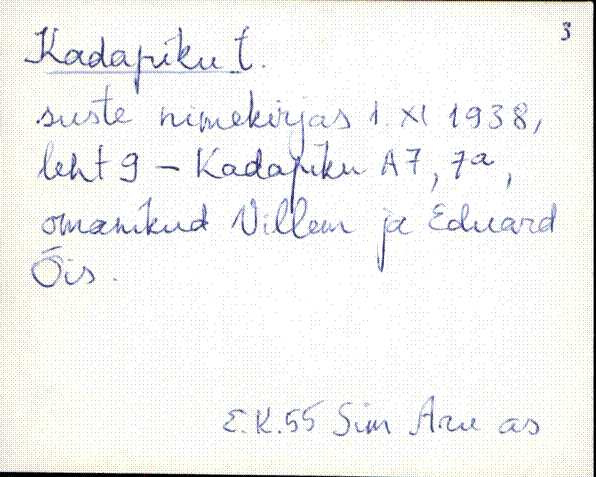 3
Kadapiku t.
suste nimekirjas 1. XI 1938,
leht 9 – Kadapiku A7, 7a,
omanikud Villem ja Eduard
Õis.
E.K.55 Sim Aru as